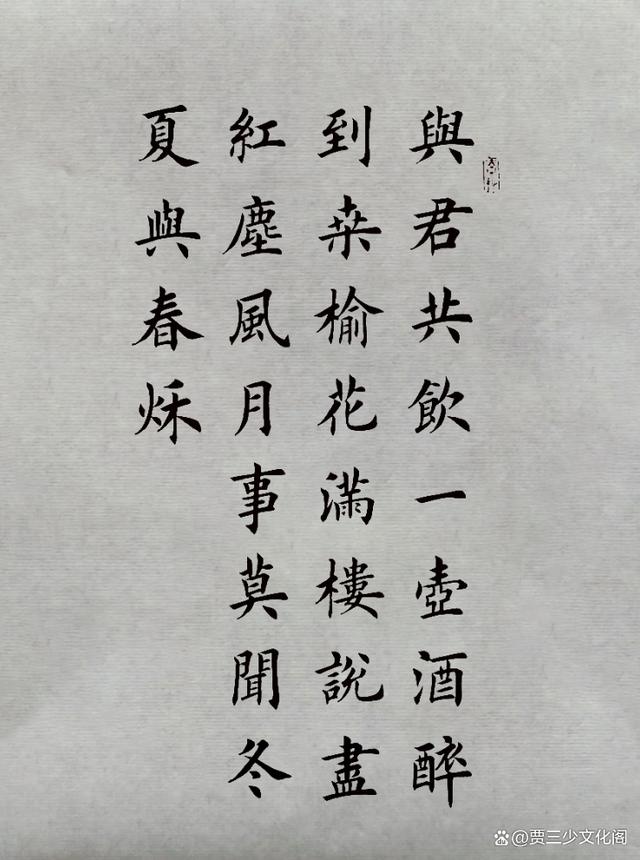 與君共飲一壺酒醉
到桒榆花滿樓說盡
紅塵風月事莫聞冬
夏與春秌
@贾三少文化阁